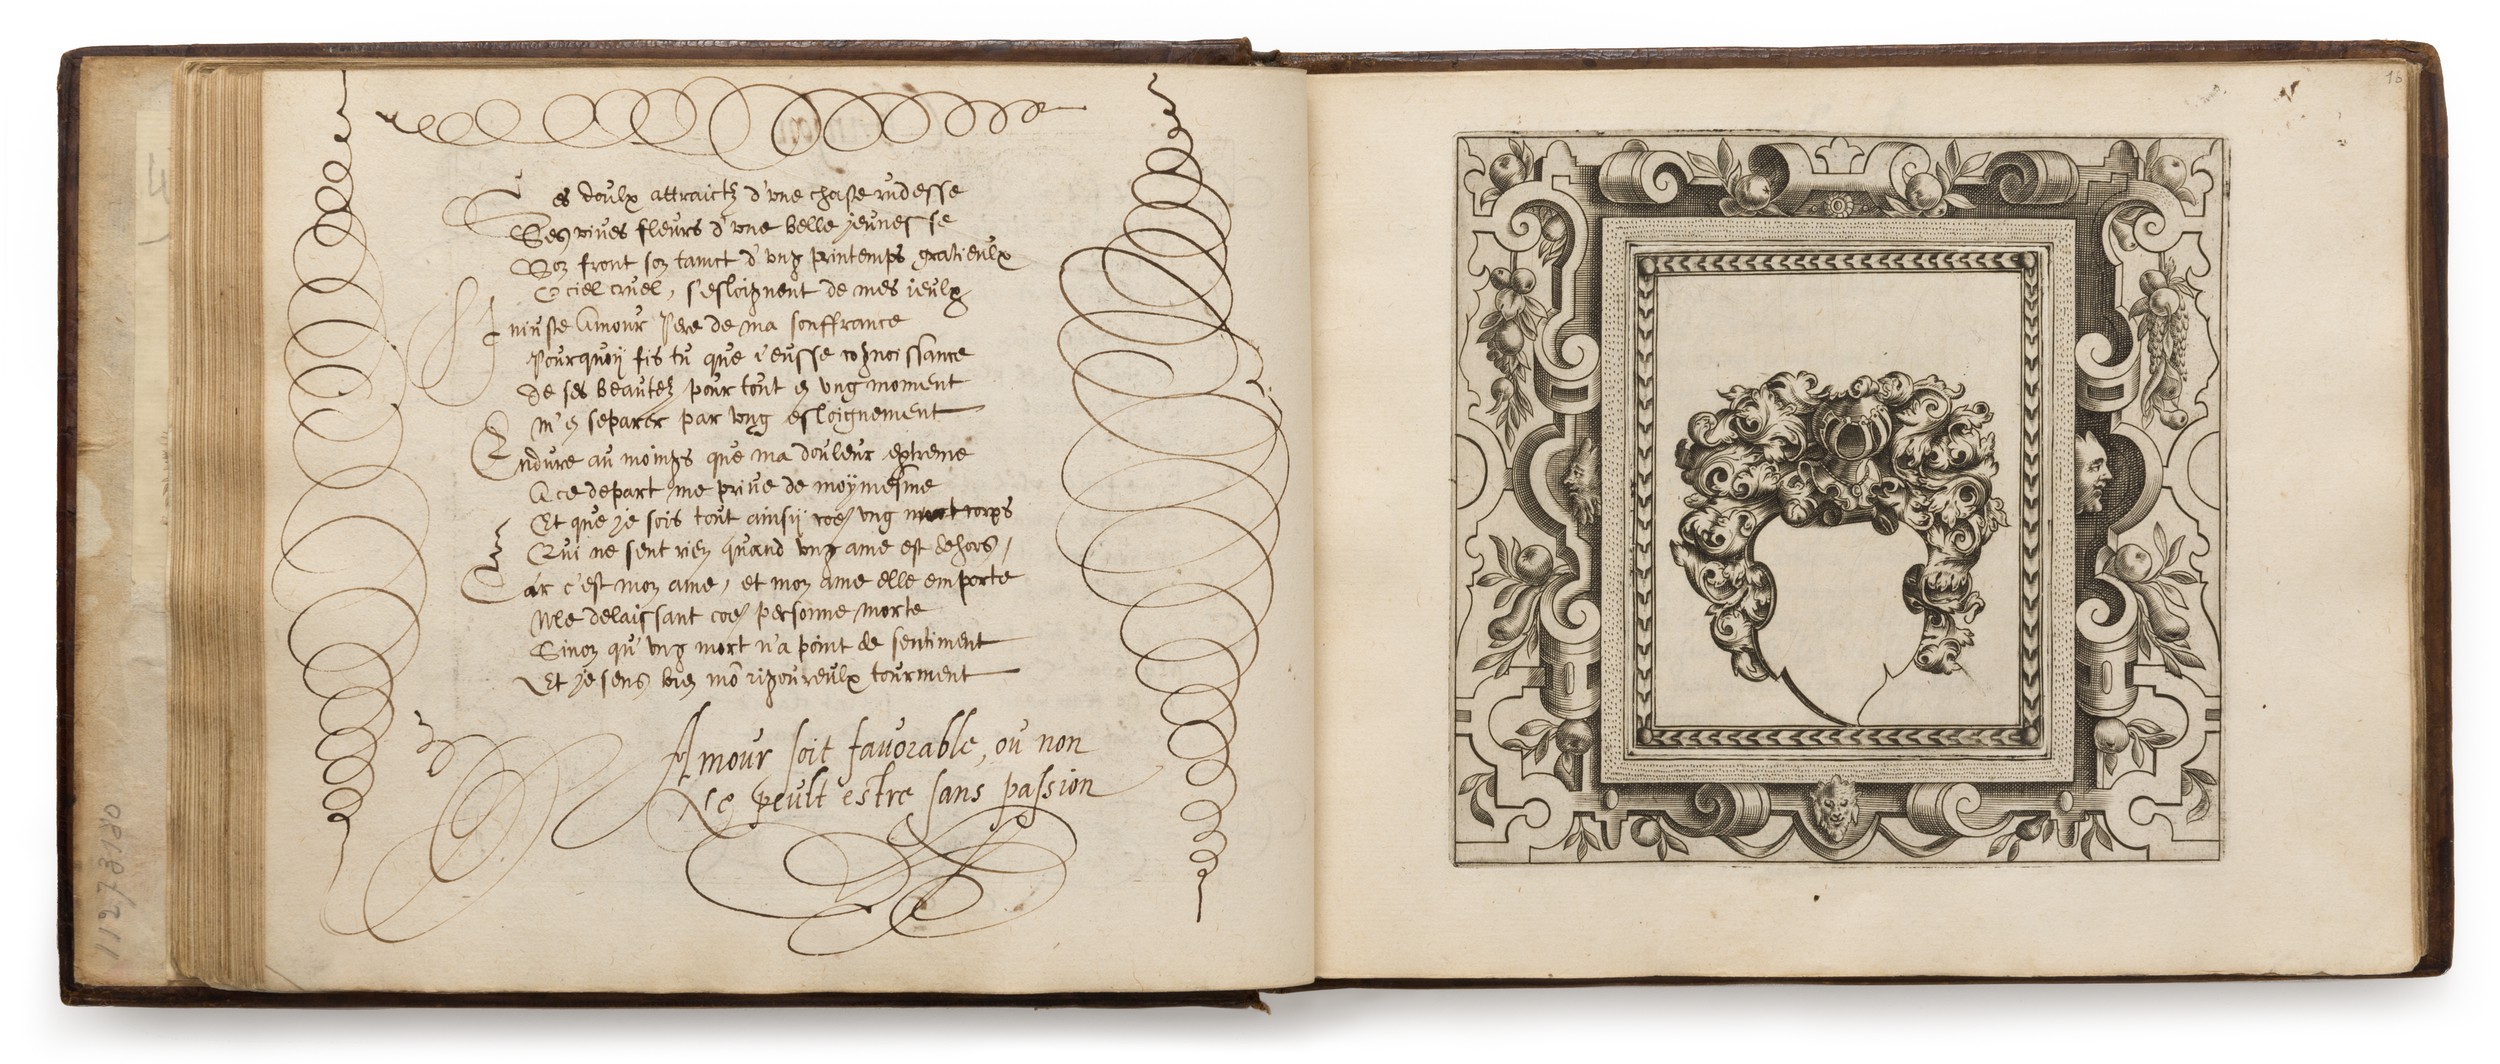 es doulx attraictz d'une chaste rudesse
Ses vives fleurs d'une belle jeunesse
Son front son tainct d'ung printemps gratieulx
O ciel cruel, s'esloignent de mes ieulx
Iniuste Amour Pere de ma souffrance
Pourquoy fis tu que i'eusse cognoissance
De ses beautez pour tout en ung moment
M'en separer par ung esloignement
Endure au moings que ma douleur extreme
A ce depart me prive de moymesme
Et que je sois tout ainsy ung mort corps
Qui ne sent rien quand ung ame est dehors /
Car c'est mon ame, et mon ame elle emporte
Me delaissant personne morte
Sinon qu'ung mort n'a point de sentiment
Et je sens bien mō rigoureulx tourment
Amour soit favorable, ou non
Ce peult estre sans passion
16
11273180